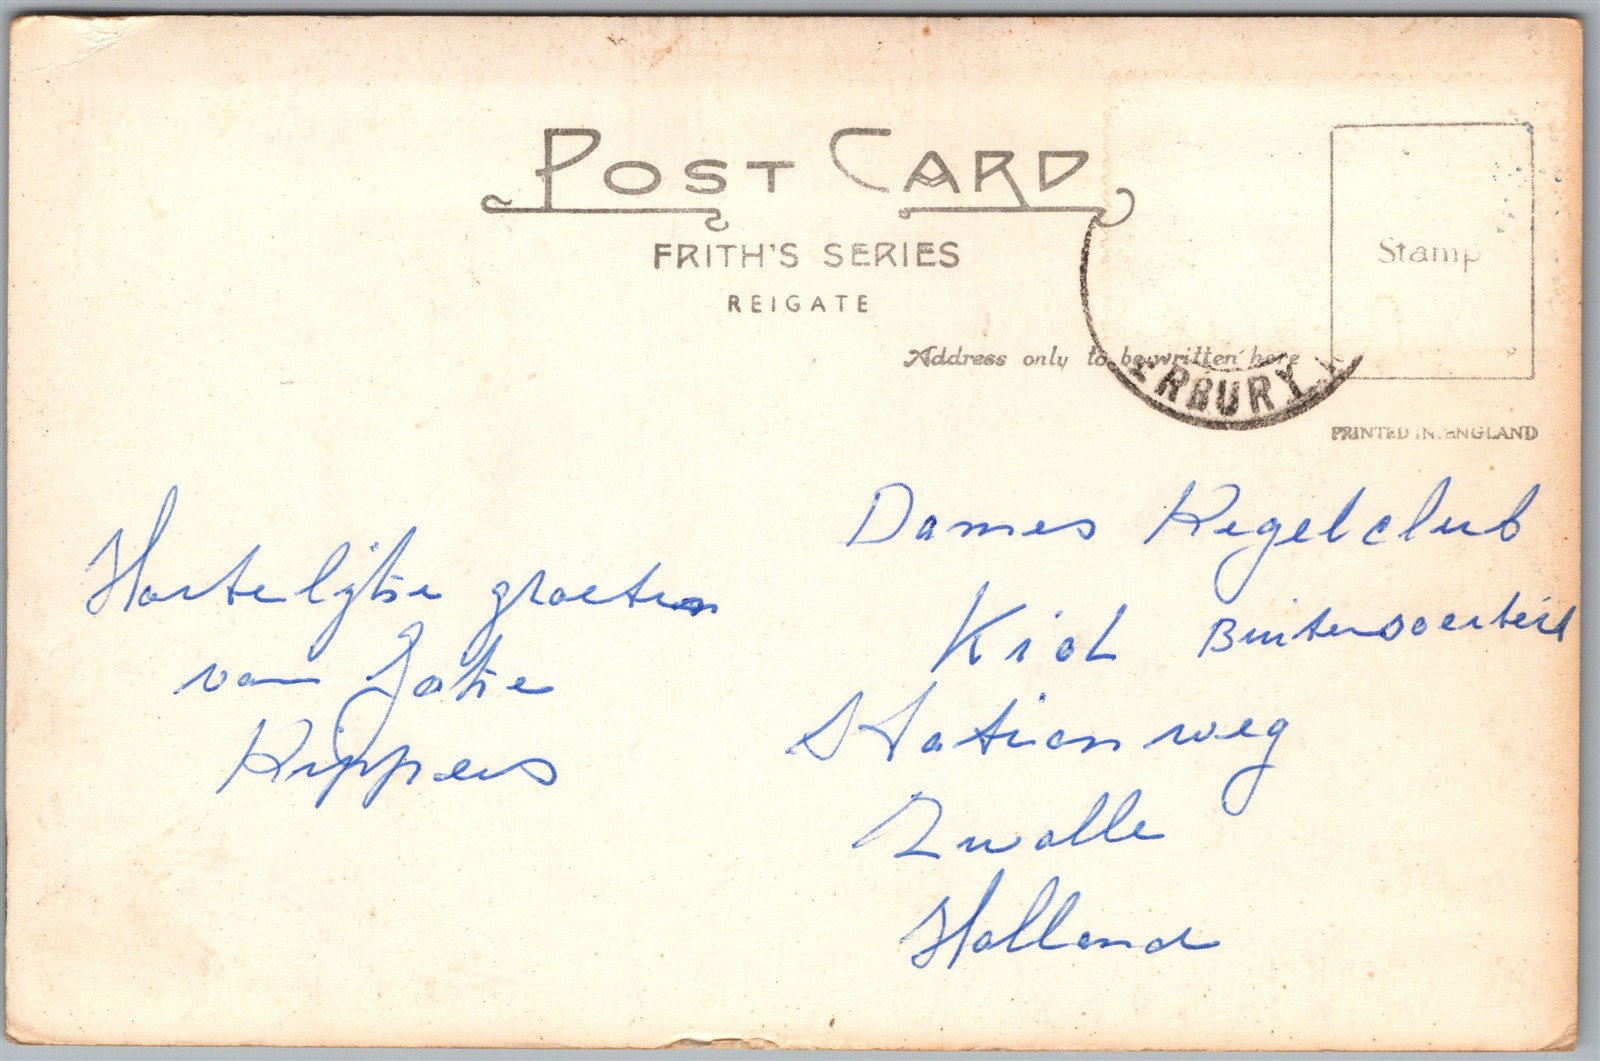 POST CARD
FRITH'S SERIES
REIGATE
Stamp
Address only to be written here
ERBURY
PRINTED IN ENGLAND
Hartelijke groeten
van Jatie
Kippers
Dames Kegelclub
Stationsweg
Zwolle
Holland